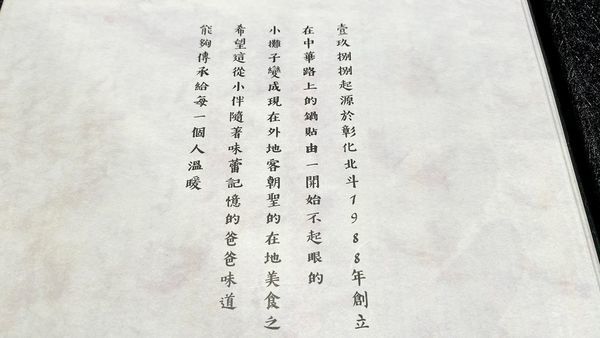 壹玖捌捌起源於彰化北斗1988年創立
在中華路上的鍋貼由一開始不起眼的
小攤子變成現在外地客朝聖的在地美食之
希望這從小伴隨著味蕾記憶的爸爸味道
能夠傳承給每一個人溫暖